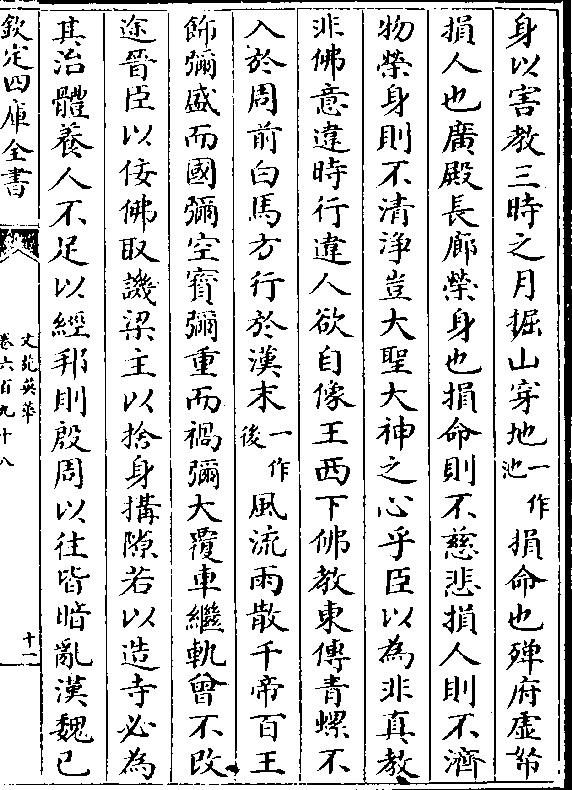 身以害教三時之月掘山穿地一作池損命也殫府虛帑
損人也廣殿長廊榮身也損命則不慈悲損人則不濟
物榮身則不清淨豈大聖大神之心乎臣以為非真教
非佛意違時行違人欲自像王西下佛教東傳青螺不
入於周前白馬方行於漢末一作後風流雨散千帝百王
飾彌盛而國彌空寶彌重而禍彌大覆車繼軌曾不改
途晉臣以佞佛取譏梁主以捨身搆隙若以造寺必為
其治體養人不足以經邦則殷周以往皆暗亂漢魏已
欽定四庫全書
文苑英華
卷六百九十八
十一